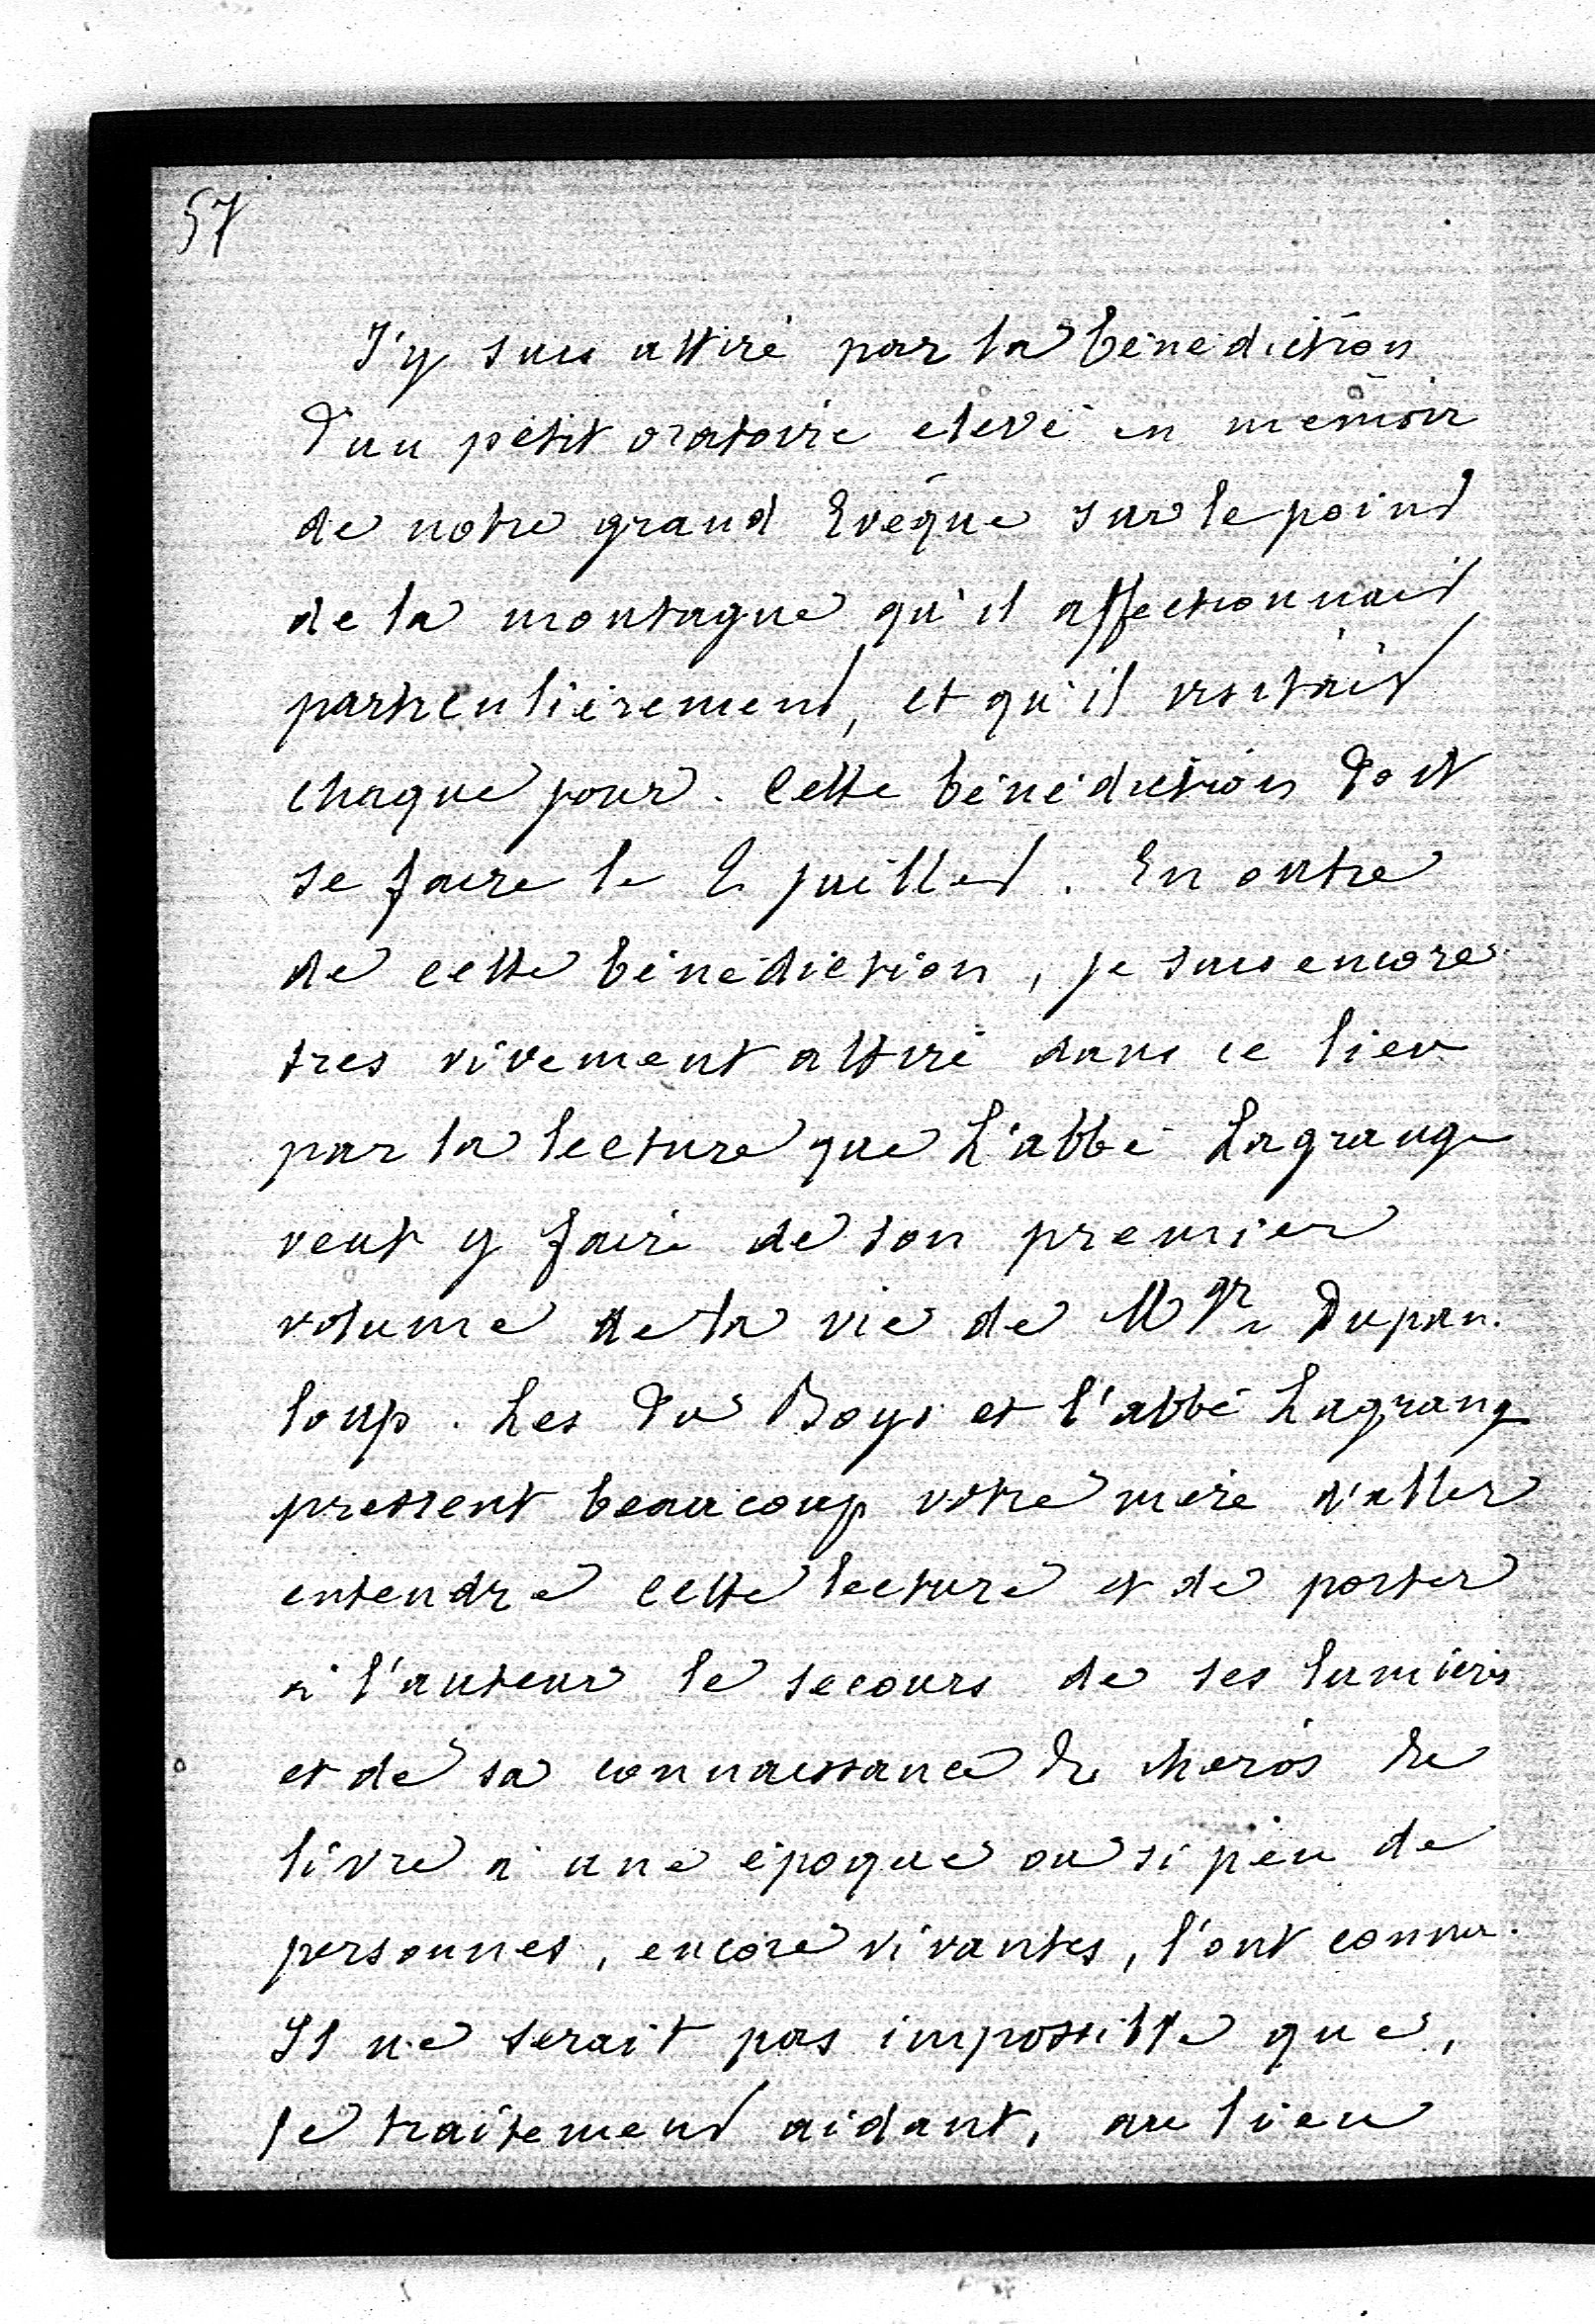 57
J'y suis attiré par la bénédiction
d'un petit oratoire elevé en memoir
de notre grand Evêque sur le point
de la montagne qu'il affectionnait
particulièrement, et qu'il visitait
chaque jour. Cette bénédiction doit
se faire le 2 juillet. En outre
de cette bénédiction, je suis encore
tres vivement attiré dans ce lieu
par la lecture que L'abbé Lagrange
veut y faire de son premier
volume de la vie de Mgr Dupan-
loup. Les du Boys et l'abbé Lagrange
pressent beaucoup votre mère d'aller
entendre cette lecture et de porter
à l'auteur le secours de ses lumières
et de sa connaissance du heros du
livre à une époque ou si peu de
personnes, encore vivantes, l'ont connu.
Il ne serait pas impossible que,
le traitement aidant, au lieu